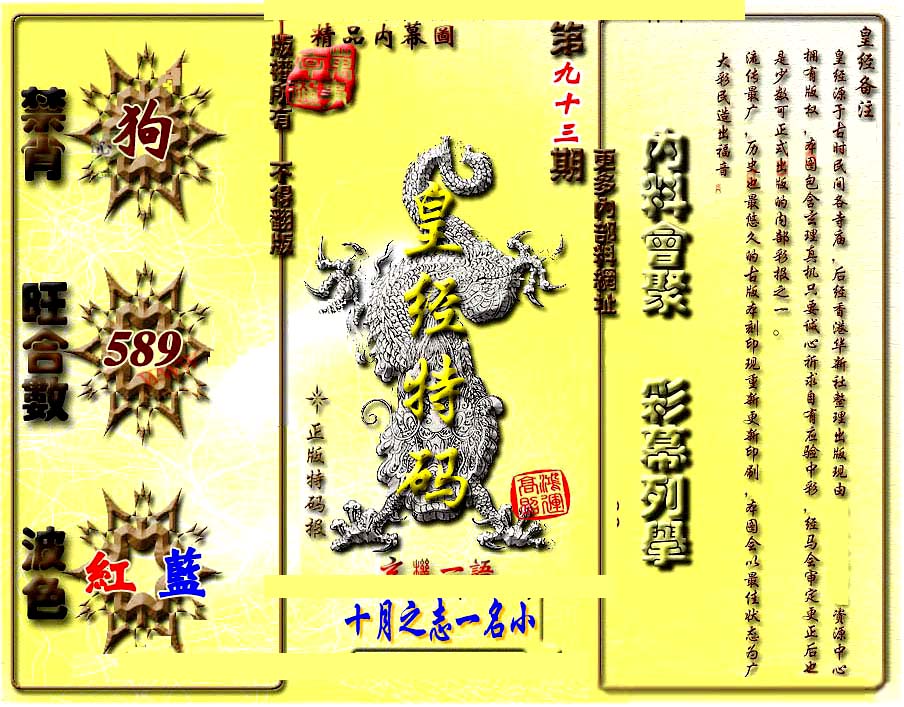 禁肖
狗
旺合數
589
波色
紅 藍
版權所有 不得翻版
精品内幕圖
第九十三期
皇经特码
正版特码报
鴻運高照
玄機一語
十月之志一名小
更多内部料網址
内料會聚
彩幕列舉
皇经备注
皇经源于古时民间各寺庙，后经香港华新社整理出版现由 资源中心
拥有版权，本图包含玄理真机只要诚心祈求自有应验中彩，经马会审定更正后也
是少数可正式出版的内部彩报之一。
流传最广，历史也最悠久的古版本刻印现重新更新印刷，本图会以最佳状态为广
大彩民造出福音